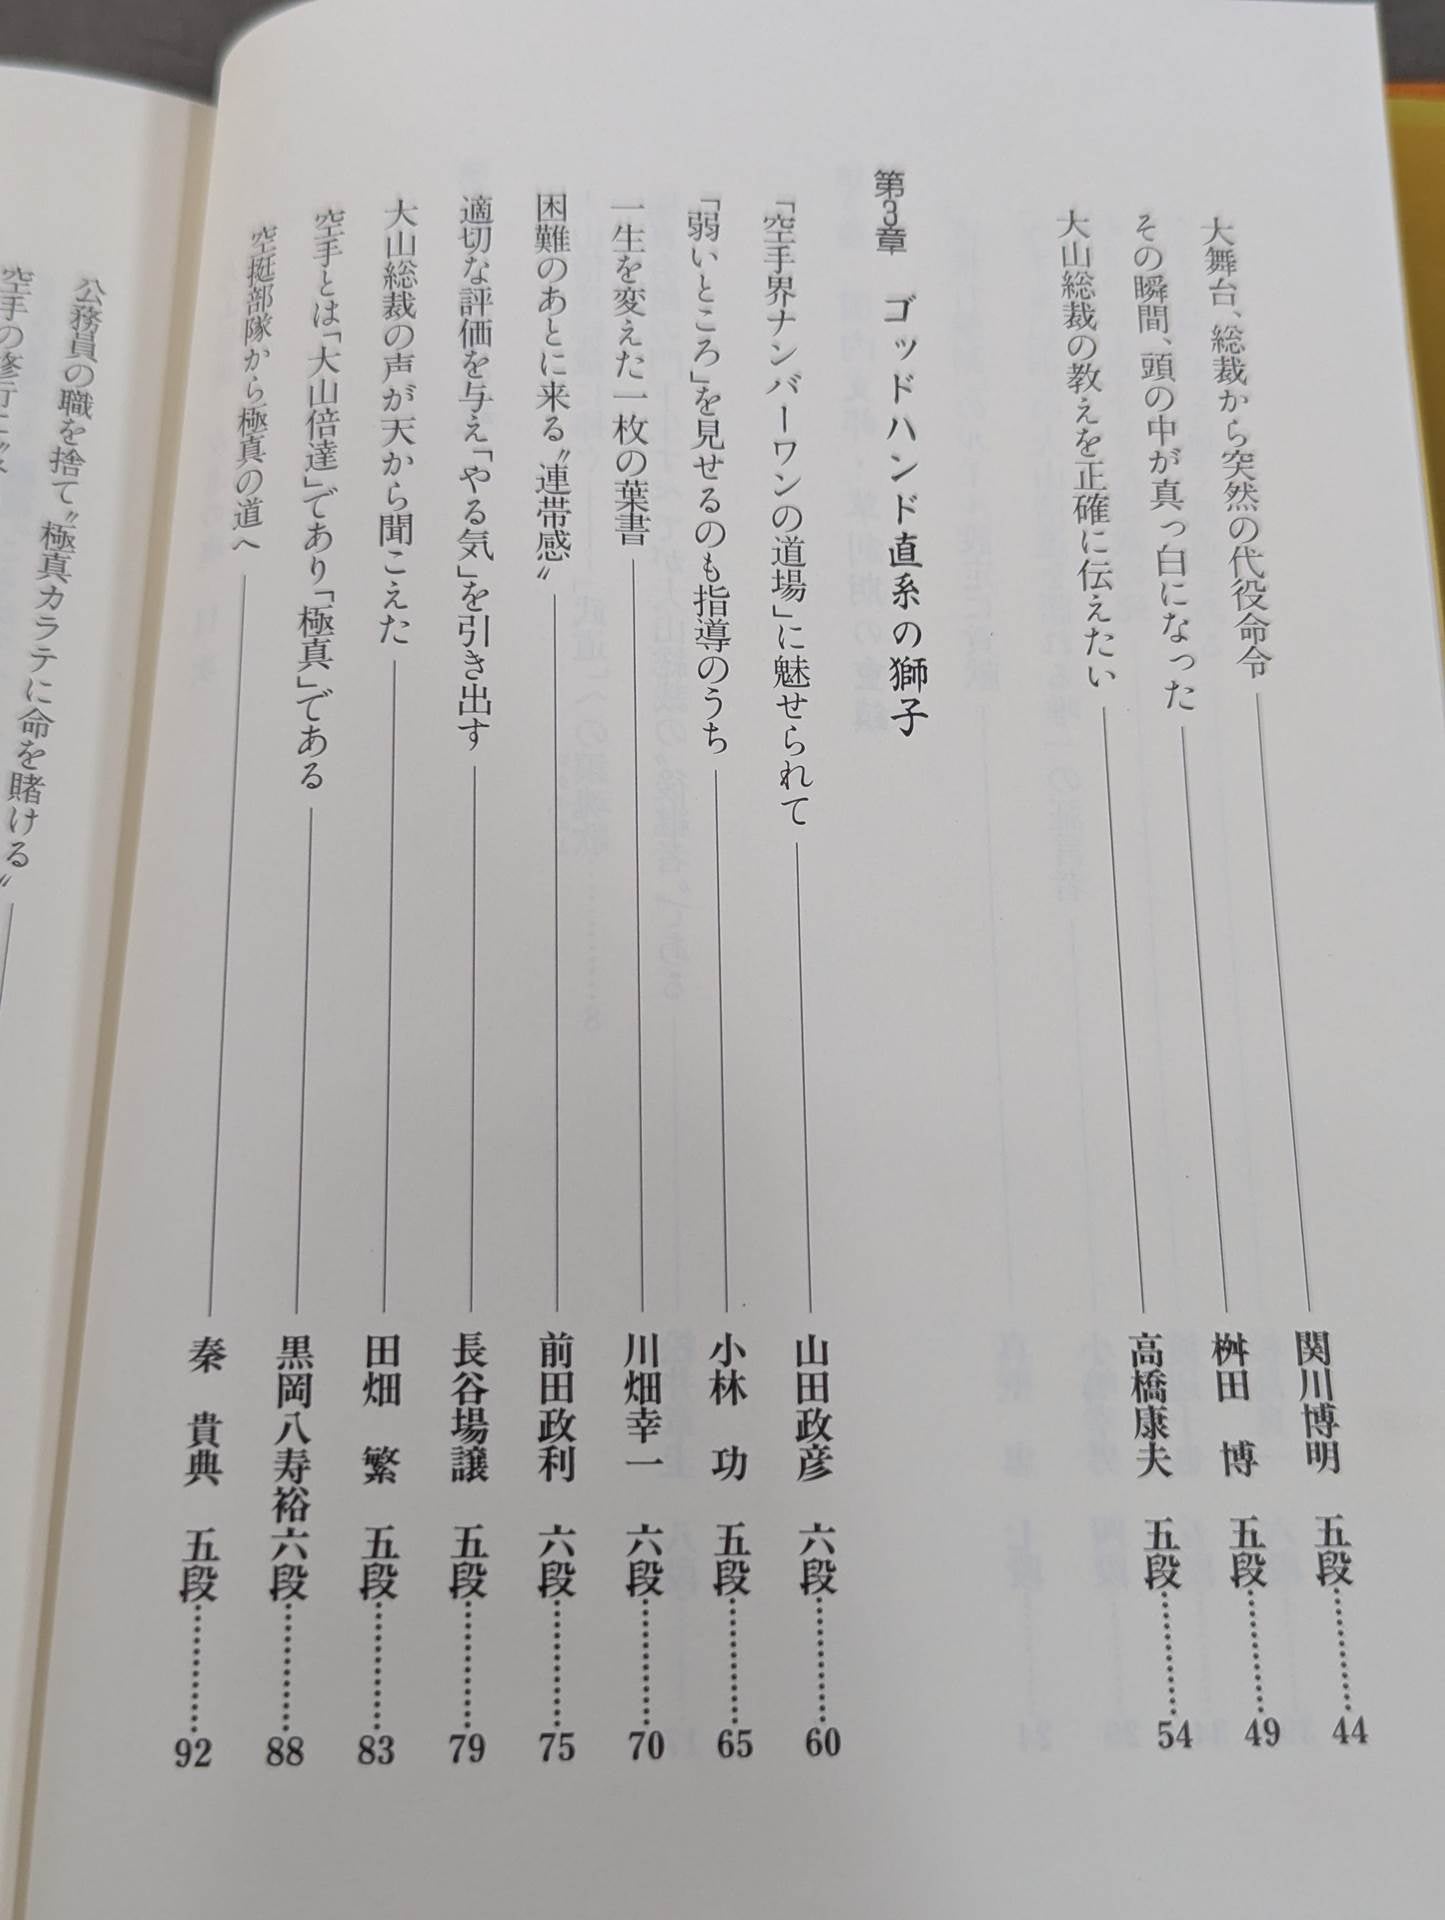 大舞台、総裁から突然の代役命令 関川博明 五段………… 44
その瞬間、頭の中が真っ白になった 桝田 博 五段………… 49
大山総裁の教えを正確に伝えたい 高橋康夫 五段………… 54
第3章 ゴッドハンド直系の獅子
「空手界ナンバーワンの道場」に魅せられて 山田政彦 六段………… 60
「弱いところ」を見せるのも指導のうち 小林 功 五段………… 65
一生を変えた一枚の葉書 川畑幸一 六段………… 70
困難のあとに来る〝連帯感〟 前田政利 六段………… 75
適切な評価を与え「やる気」を引き出す 長谷場譲 五段………… 79
大山総裁の声が天から聞こえた 田畑 繁 五段………… 83
空手とは「大山倍達」であり「極真」である 黒岡八寿裕 六段………… 88
空挺部隊から極真の道へ 秦 貴典 五段………… 92
公務員の職を捨て〝極真カラテに命を賭ける〟
空手の修行に